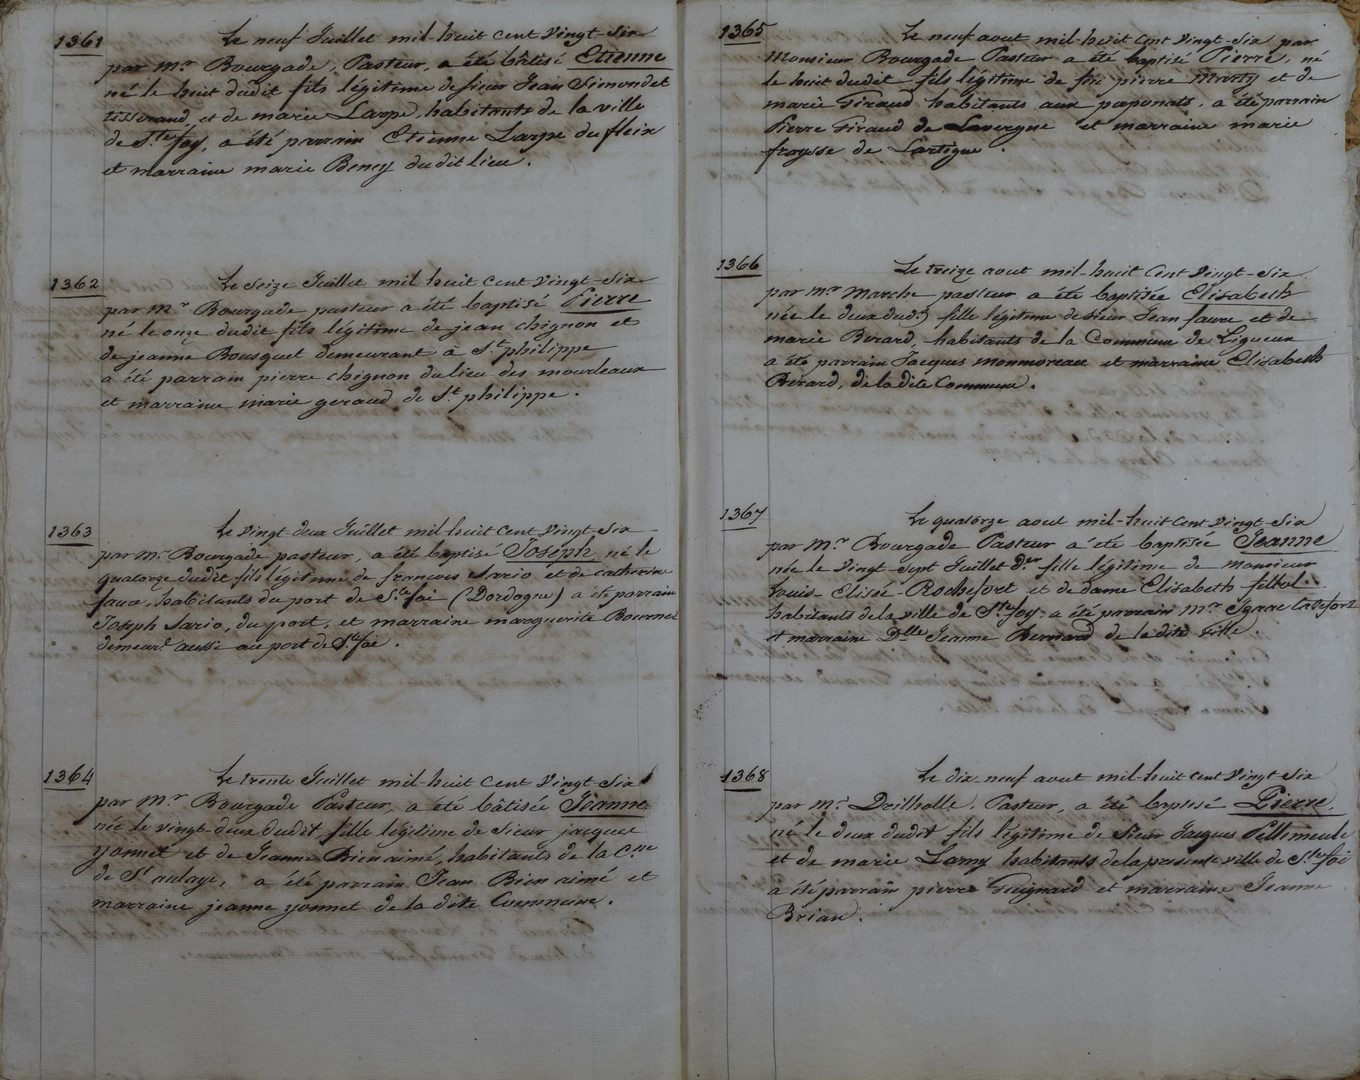 1361
Le neuf Juillet mil huit cent Vingt-Six
par mr Bourgade, Pasteur, a été bâtisé Etienne
né le huit dudit fils légitime de sieur Jean Simondet
tisserand, et de marie Larpe, habitants de la ville
de Ste foy, a été parrain Etienne Larpe du fleix
et marraine marie Beney dudit lieu.
1362
Le Seize Juillet mil huit cent Vingt-Six
par mr Bourgade pasteur a été baptisé Pierre
né le onze dudit fils légitime de jean chignon et
de jeanne Bousquet demeurant à St philippe
a été parrain pierre chignon du lieu des mourleaux
et marraine marie geraud de St philippe.
1363
Le Vingt-deux Juillet mil huit cent Vingt-Six
par mr Bourgade pasteur, a été baptisé Joseph né le
quatorze dudit fils légitime de françois Sario et de catherine
faure, habitants du port de Ste foi (Dordogne) a été parrain
Joseph Sario, du port, et marraine marguerite
demeurt aussi au port de Ste foi.
1364
Le trente Juillet mil-huit cent Vingt-Six
par mr Bourgade Pasteur, a été bâtisée Jeanne
née le vingt deux dudit, fille légitime de Sieur jacques
yonnet et de Jeanne Bien aimé, habitants de la Cne
de St aulaye, a été parrain Jean Bien aimé et
marraine jeanne yonnet de la dite Commune.
1365
Le neuf aout mil-huit Cent Vingt-Six par
Monsieur Bourgade Pasteur a été baptisé Pierre, né
le huit dudit fils légitime de feu pierre Marty et de
marie Giraud habitants aux paponats, a été parrain
Pierre Giraud de Lavergne et marraine marie
fraysse de Lartigue.
1366
Le treize aout mil-huit Cent Vingt-Six
par mr Marche pasteur a été baptisée Elisabeth
née le deux dudt fille légitime de Sieur Jean faure et de
marie Berard, habitants de la Commune de Ligueux
a été parrain Jacques monmoreau et marraine Elisabeth
Berard, de la dite Commune.
1367
Le quatorze aout mil-huit Cent Vingt-Six
par Mr Bourgade Pasteur a été baptisée Jeanne
née le Vingt Sept Juillet Der fille légitime de Monsieur
Louis-Elisée-Rochefort et de dame Elisabeth filhol
habitants de la ville de Ste foy, a été parrain Mr Ignace
et marraine Dlle Jeanne Bernard de la dite Ville.
1368
Le dix neuf aout mil-huit cent Vingt Six
par mr Drilholle, Pasteur, a été baptisé Pierre,
né le deux dudit fils légitime de Sieur Jacques Pellimeule
et de marie Lamy habitants de la présente ville de Ste foi
a été parrain pierre Guignard et marraine Jeanne
Brian.